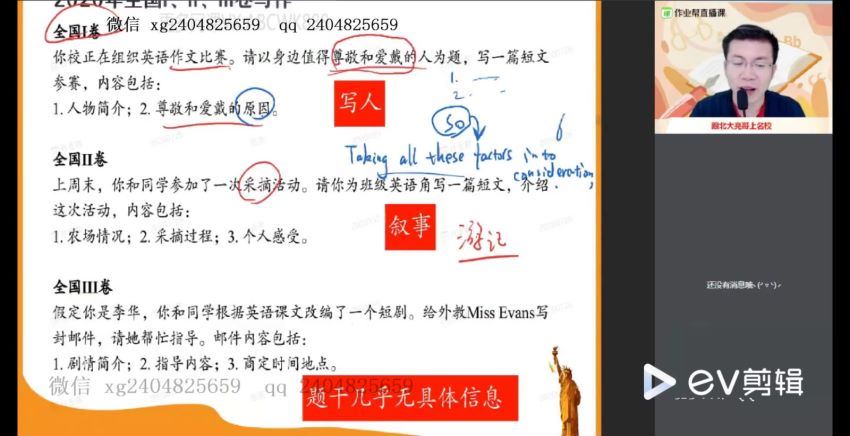 2020年全国I、II、III卷写作
微信 xg2404825659 qq 2404825659
全国I卷
你校正在组织英语作文比赛。请以身边值得尊敬和爱戴的人为题，写一篇短文
参赛，内容包括：
1. 人物简介；2. 尊敬和爱戴的原因。
写人
1.
2.
so
Taking all these factors into
consideration,
全国II卷
上周末，你和同学参加了一次采摘活动。请你为班级英语角写一篇短文，介绍
这次活动，内容包括：
1. 农场情况；2. 采摘过程；3. 个人感受。
叙事
游记
全国III卷
假定你是李华，你和同学根据英语课文改编了一个短剧。给外教Miss Evans写
封邮件，请她帮忙指导。邮件内容包括：
1. 剧情简介；2. 指导内容；3. 商定时间地点。
微信 xg2404825659 qq 2404825659
题干几乎无具体信息
作业帮直播课
Bb
跟北大亮哥上名校
还没有消息呦~
ev剪辑